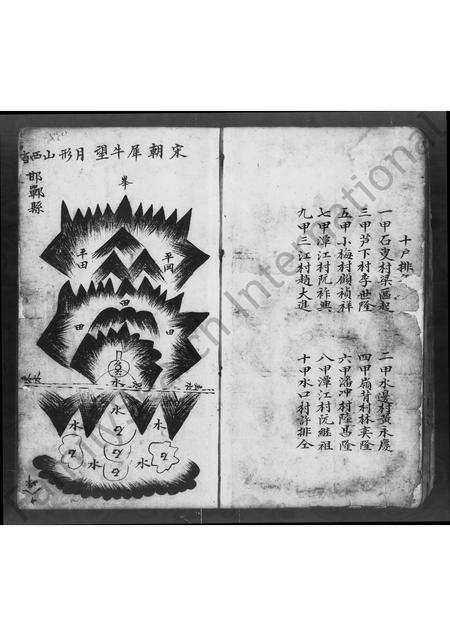 十戶排
一甲石叟村梁函起
二甲水邊村黃永慶
三甲芦下村李世隆
四甲嶺背村林奕隆
五甲小梅村顧禎祥
六甲滔冲村陸萬隆
七甲潭江村阮祚興
八甲潭江村阮繼祖
九甲三江村趙大進
十甲水口村許排仝
宋朝犀牛望月形山西省
邯鄲縣
峯
平岡
平田
田
田
田
水
水
水
水
水
水
水